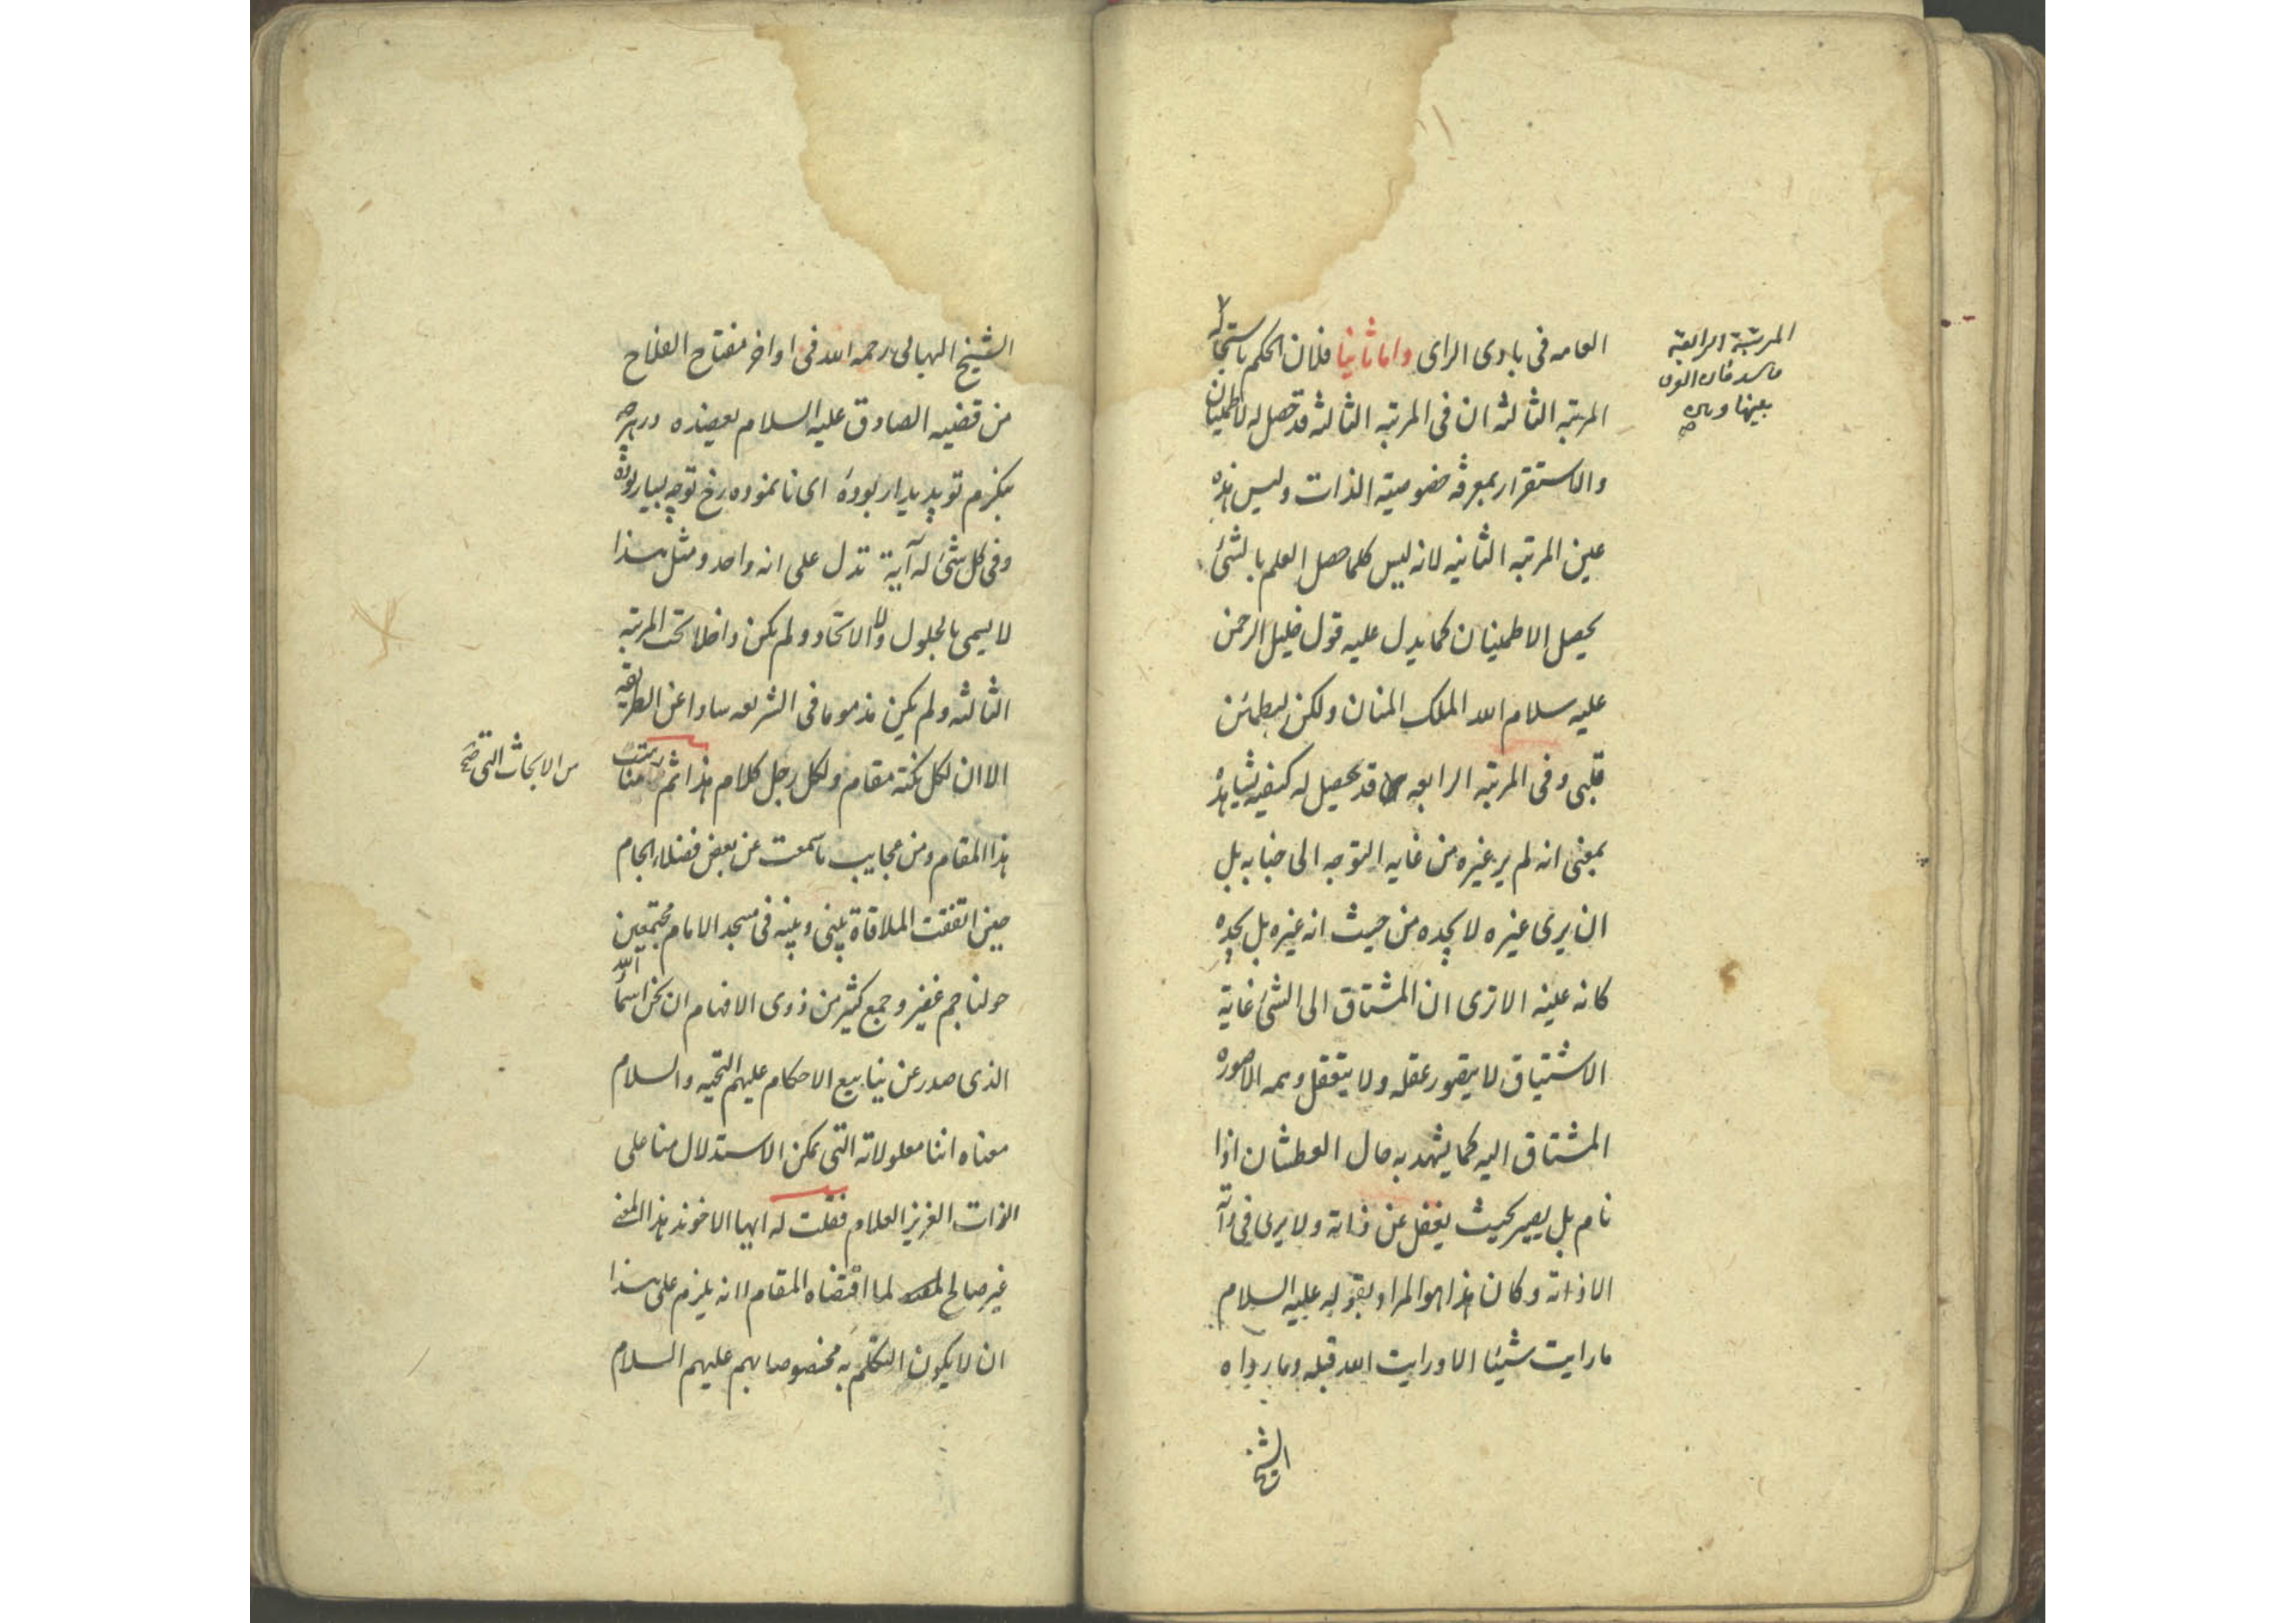 العامه فى بادى الراى واما ثانيا فلان الحكم باستحالة
المرتبه الثالثه ان فى المرتبه الثالثه قد تحصل له الاطمينان
والاستقرار بمعرفه خصوصيته الذات وليس هذه
عين المرتبه الثانيه لانه ليس كلما حصل العلم بالشئ
يحصل الاطمينان كما يدل عليه قول خليل الرحمن
عليه سلام الله الملك المنان ولكن ليطمئن
قلبى وفى المرتبه الرابعه قد يحصل له كيفيه يشاهده
بمعنى انه لم ير غيره من غايه التوجه الى جنابه بل
ان يرى غيره لا يجده من حيث انه غيره بل يجده
كانه عينه الا ترى ان المشتاق الى الشئ غاية
الاشتياق لا يتصور عقله ولا يتعقل وهمه الا صوره
المشتاق اليه كما يشهد به حال العطشان اذا
نام بل يصير بحيث يغفل عن ذاته ولا يرى فى ذاته
الا ذاته وكان هذا هو المراد بقوله عليه السلام
ما رايت شيئا الا ورايت الله قبله وما رواه
الشيخ
المرتبة الرابعة
بعينها
صح
الشيخ البهائى رحمه الله فى اواخر مفتاح الفلاح
من قضيه الصادق عليه السلام يعضده در هر چه
بنكرم تو پديدار بودهٔ اى نا نموده رخ تو چه بسيار بودهٔ
وفى كل شئ له آية تدل على انه واحد ومثل هذا
لا يسمى بالحلول ولا الاتحاد ولم يكن داخلا تحت المرتبه
الثالثه ولم يكن مذموما فى الشريعه ساوا عن الطريقه
الا ان لكل نكته مقام ولكل رجل كلام هذا ثم
هذا المقام ومن عجايب ما سمعت عن بعض فضلاء الجام
حين اتفقت الملاقاة بينى وبينه فى مسجد الامام مجتمعين
حولنا جم غفير وجمع كثير من ذوى الافهام ان نحن اسماء الله
الذى صدر عن ينابيع الاحكام عليهم التحيه والسلام
معناه اننا معلولاته التى يمكن الاستدلال منا على
الذات العزيز العلام فقلت له ايها الاخوند هذا المعنى
غير صالح لما اقتضاه المقام لانه يلزم على هذا
ان لا يكون التكلم به مخصوصا بهم عليهم السلام
من الابحاث التى صح